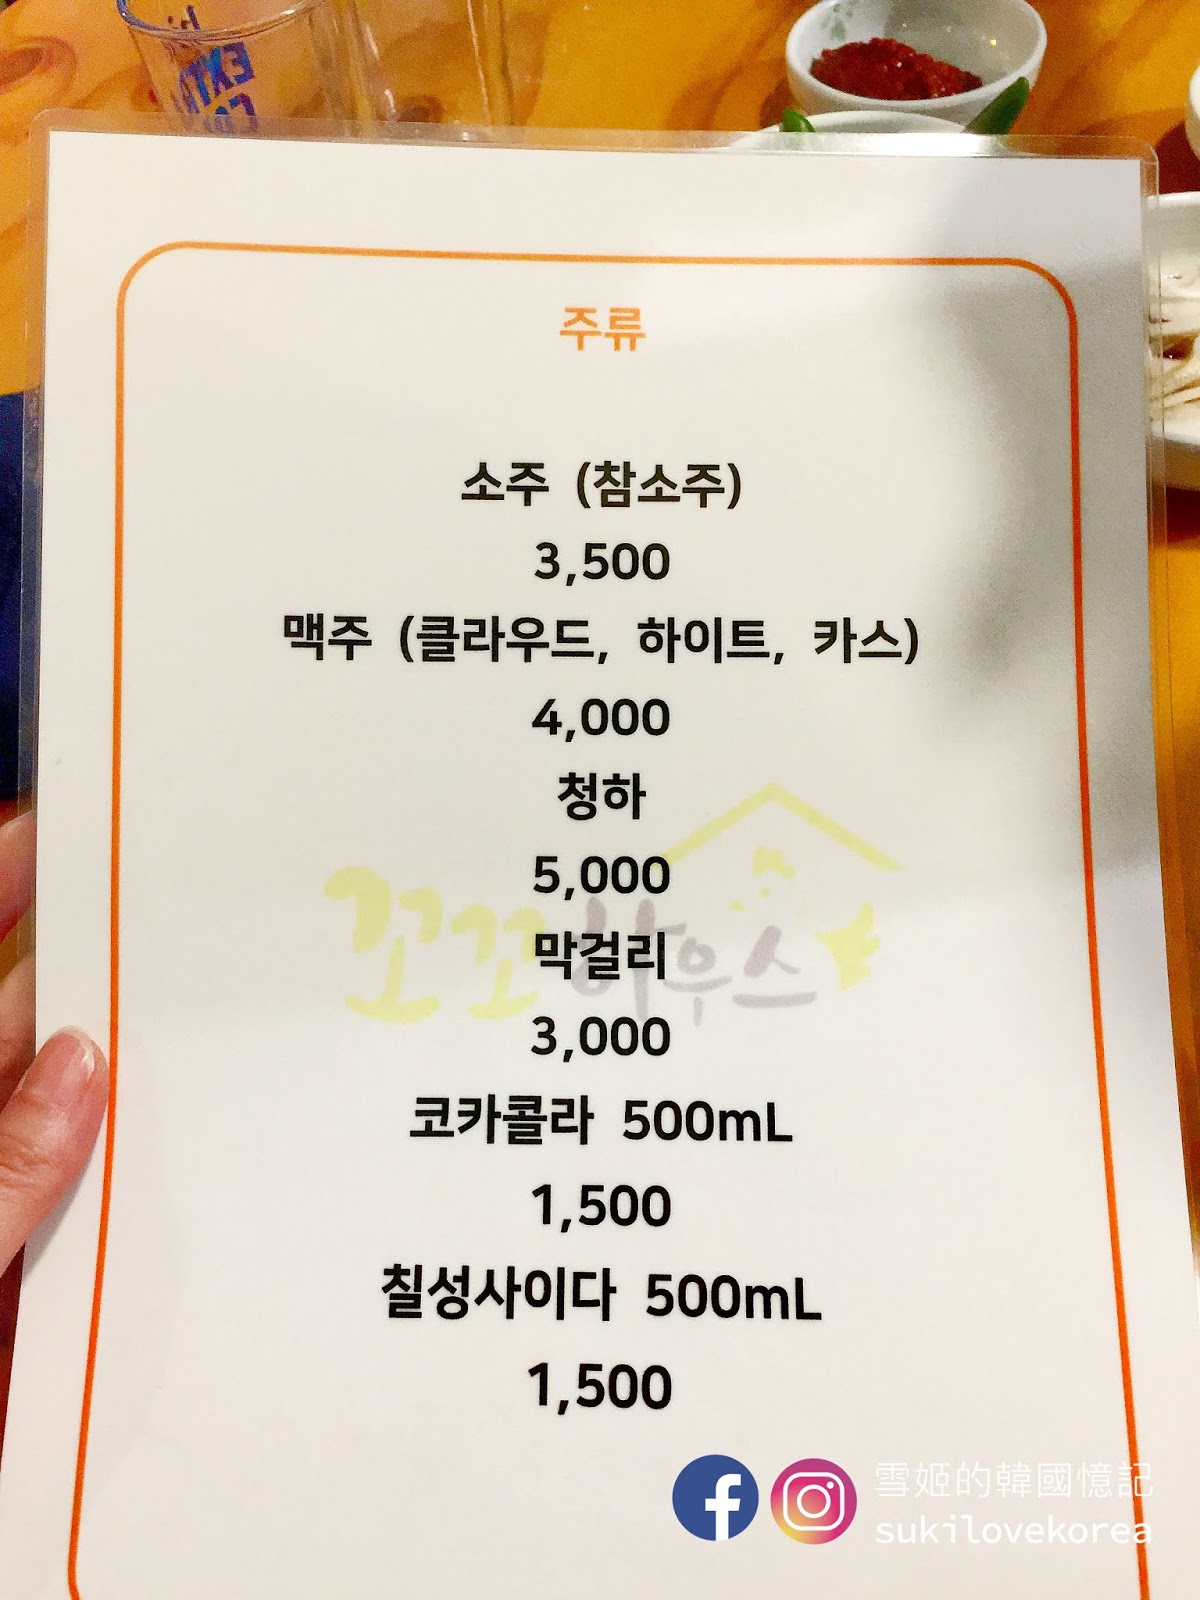 주류
소주 (참소주)
3,500
맥주 (클라우드, 하이트, 카스)
4,000
청하
5,000
꼬꼬하우스
막걸리
3,000
코카콜라 500mL
1,500
칠성사이다 500mL
1,500
雪姬的韓國憶記
sukilovekorea